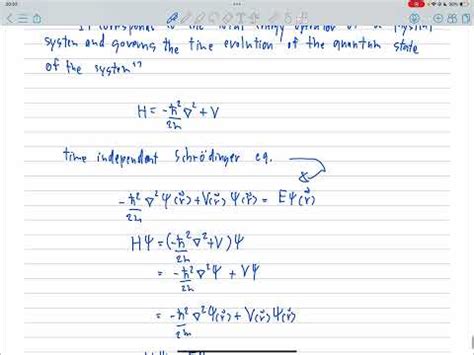 20:20
It corresponds to the total energy operator of a
system and governs the time evolution of the quantum state
of the system"
H = -ℏ²/2m ∇² + V
time independent Schrödinger eq.
-ℏ²/2m ∇²Ψ(r⃗) + V(r⃗)Ψ(r⃗) = EΨ(r⃗)
HΨ = (-ℏ²/2m ∇² + V)Ψ
= -ℏ²/2m ∇²Ψ + VΨ
= -ℏ²/2m ∇²Ψ(r⃗) + V(r⃗)Ψ(r⃗)